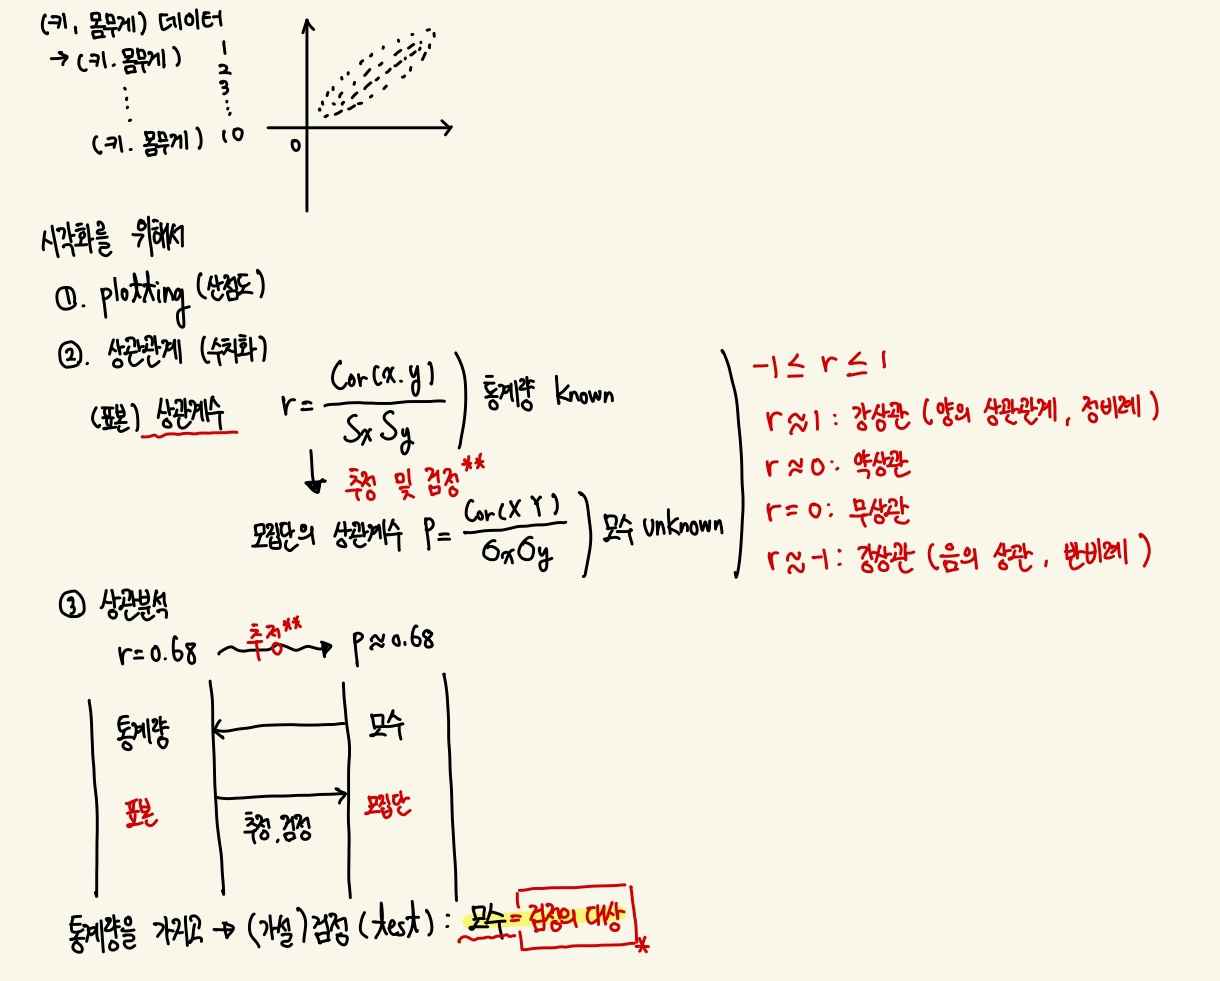 (키, 몸무게) 데이터
→ (키. 몸무게) 1
2
3
(키. 몸무게) 10
0
시각화를 위해서
①. plotting (산점도)
②. 상관관계 (수치화)
(표본) 상관계수 r = Cor(x.y) / Sx Sy ) 통계량 known
↓ 추정 및 검정**
모집단의 상관계수 P = Cor(X Y) / σx σy ) 모수 unknown
-1 ≤ r ≤ 1
r ≈ 1 : 강상관 (양의 상관관계, 정비례)
r ≈ 0 : 약상관
r = 0 : 무상관
r ≈ -1 : 강상관 (음의 상관, 반비례)
③ 상관분석
r = 0.68 추정** → P ≈ 0.68
통계량 ← 모수
표본 → 모집단
추정, 검정
통계량을 가지고 → (가설) 검정 (test) : 모수 = 검정의 대상 *